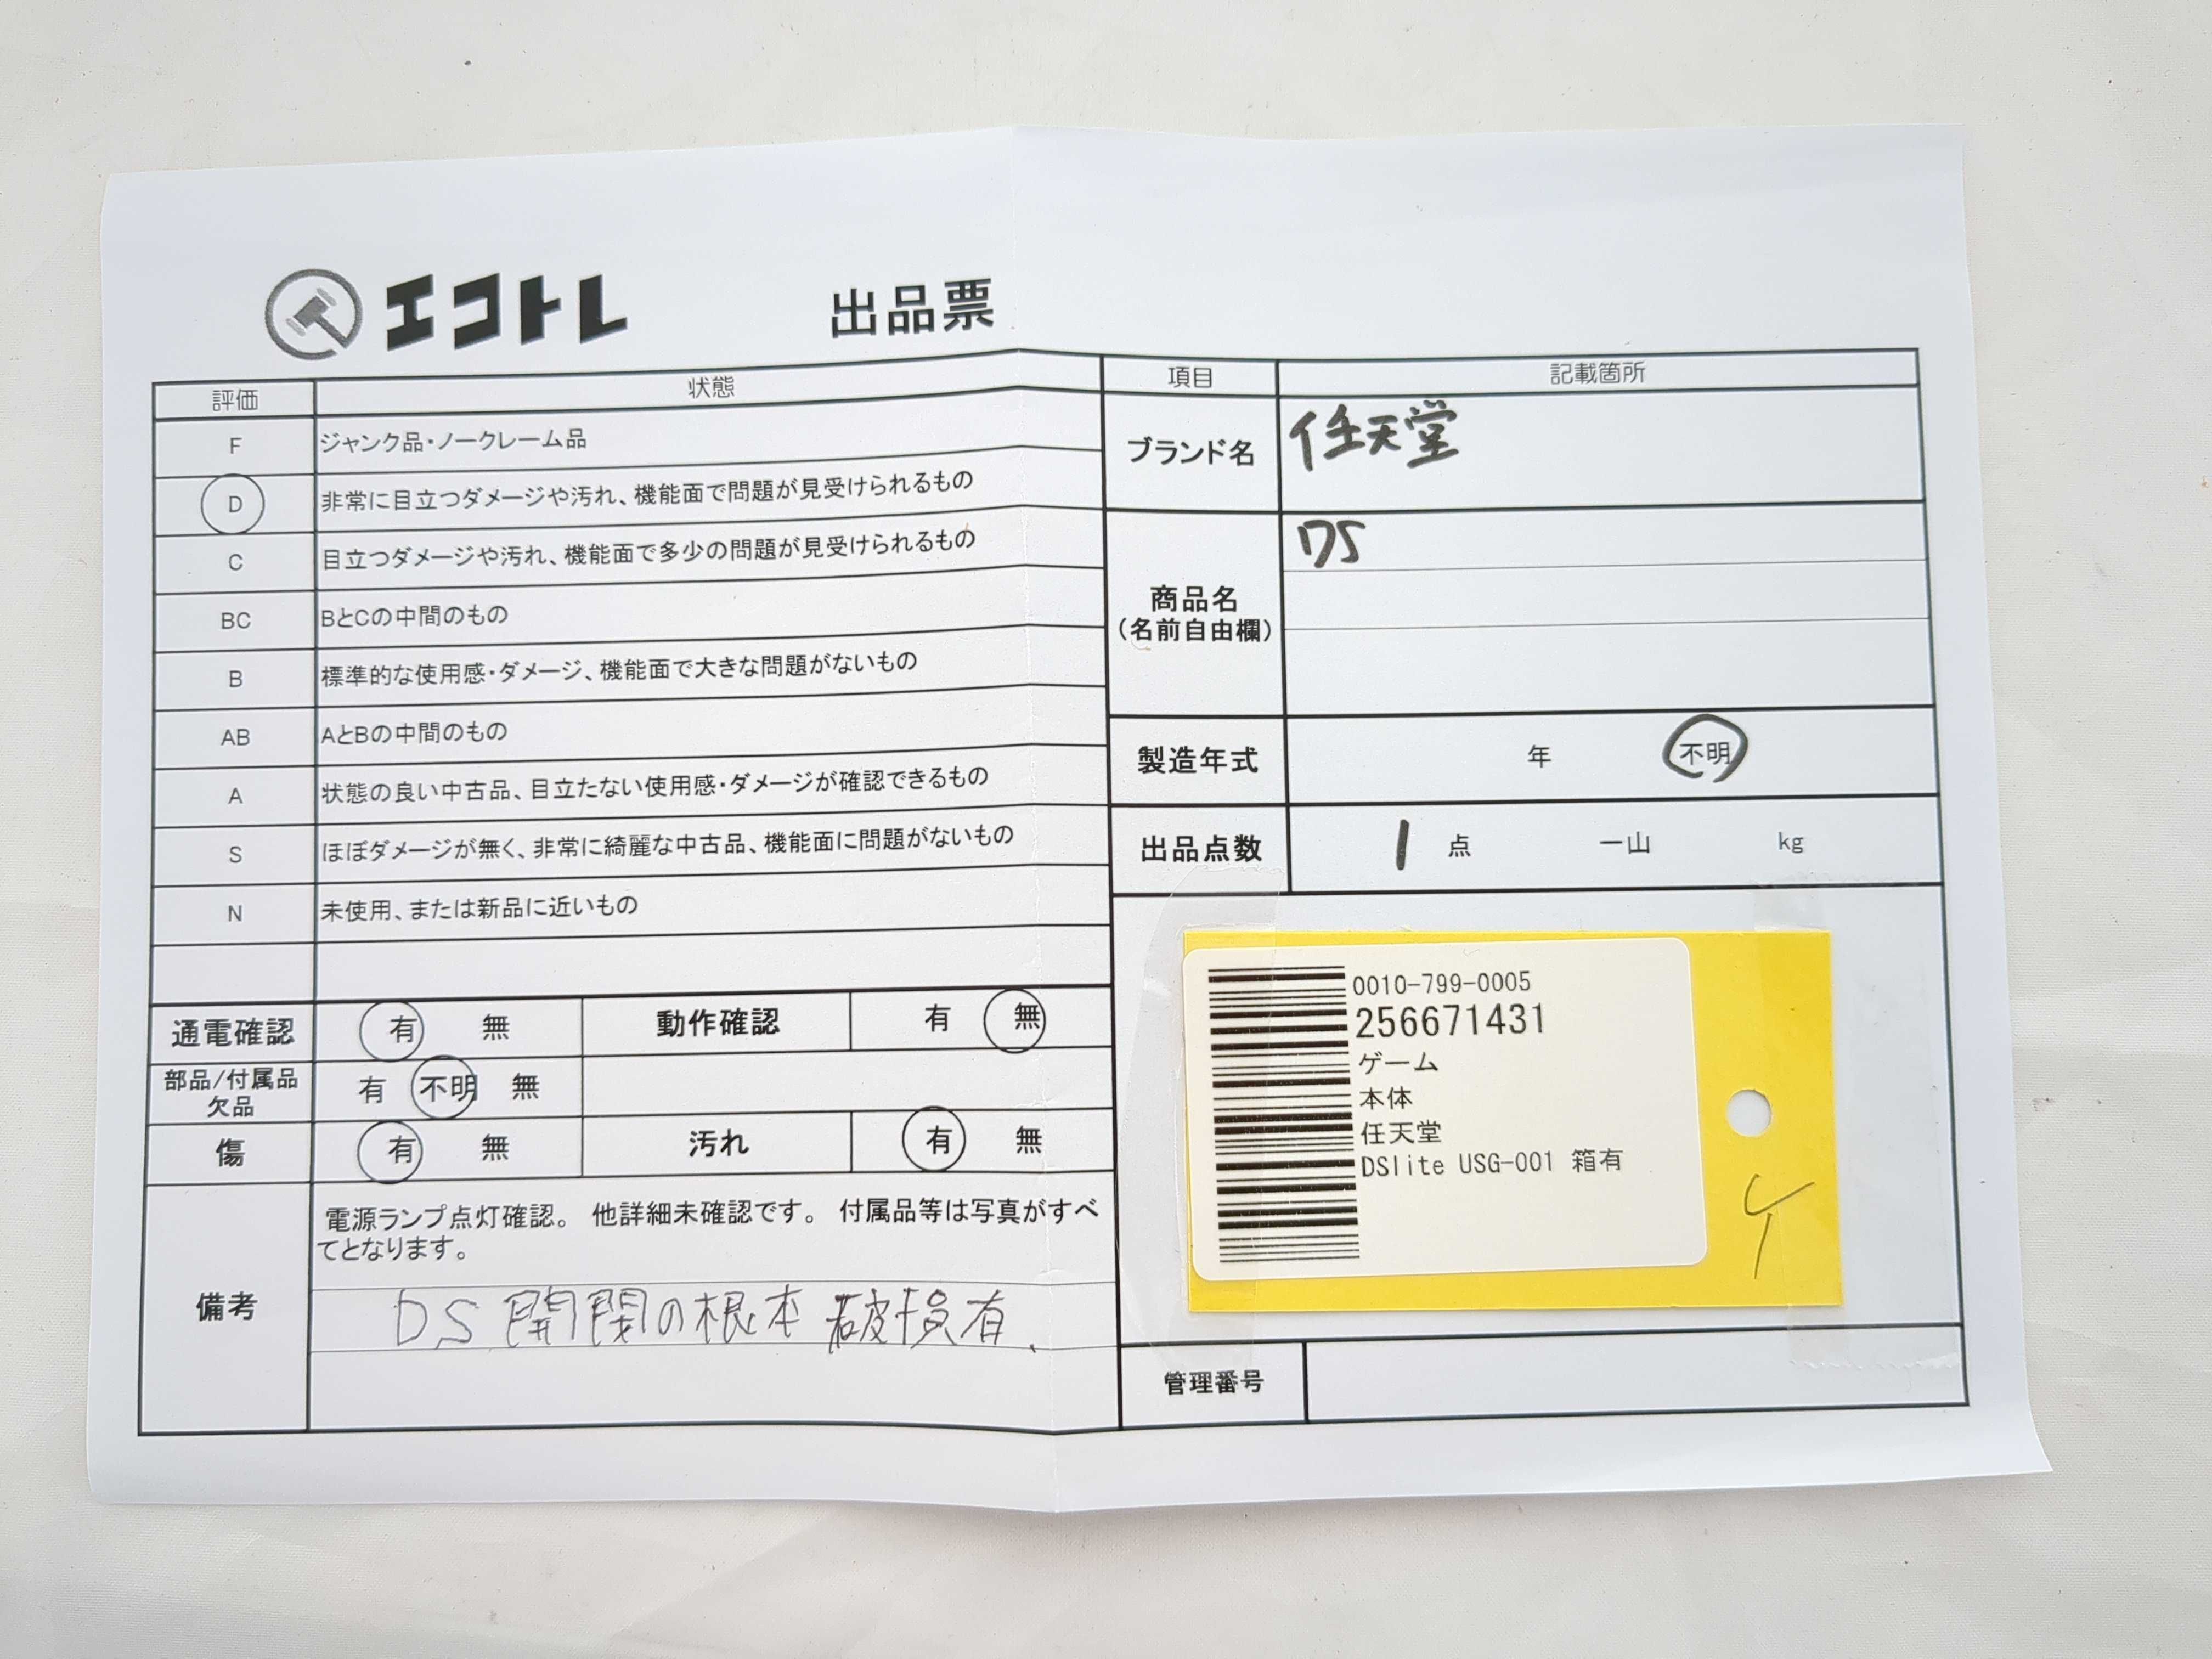 エコトレ 出品票
評価 状態
F ジャンク品・ノークレーム品
D 非常に目立つダメージや汚れ、機能面で問題が見受けられるもの
C 目立つダメージや汚れ、機能面で多少の問題が見受けられるもの
BC BとCの中間のもの
B 標準的な使用感・ダメージ、機能面で大きな問題がないもの
AB AとBの中間のもの
A 状態の良い中古品、目立たない使用感・ダメージが確認できるもの
S ほぼダメージが無く、非常に綺麗な中古品、機能面に問題がないもの
N 未使用、または新品に近いもの
通電確認 有 無 動作確認 有 無
部品/付属品
欠品 有 不明 無
傷 有 無 汚れ 有 無
備考
電源ランプ点灯確認。 他詳細未確認です。 付属品等は写真がすべ
てとなります。
DS 開閉の根本 破損有.
項目 記載箇所
ブランド名 任天堂
商品名
(名前自由欄)
DS
製造年式 年 不明
出品点数 1 点 一山 kg
0010-799-0005
256671431
ゲーム
本体
任天堂
DSlite USG-001 箱有
管理番号